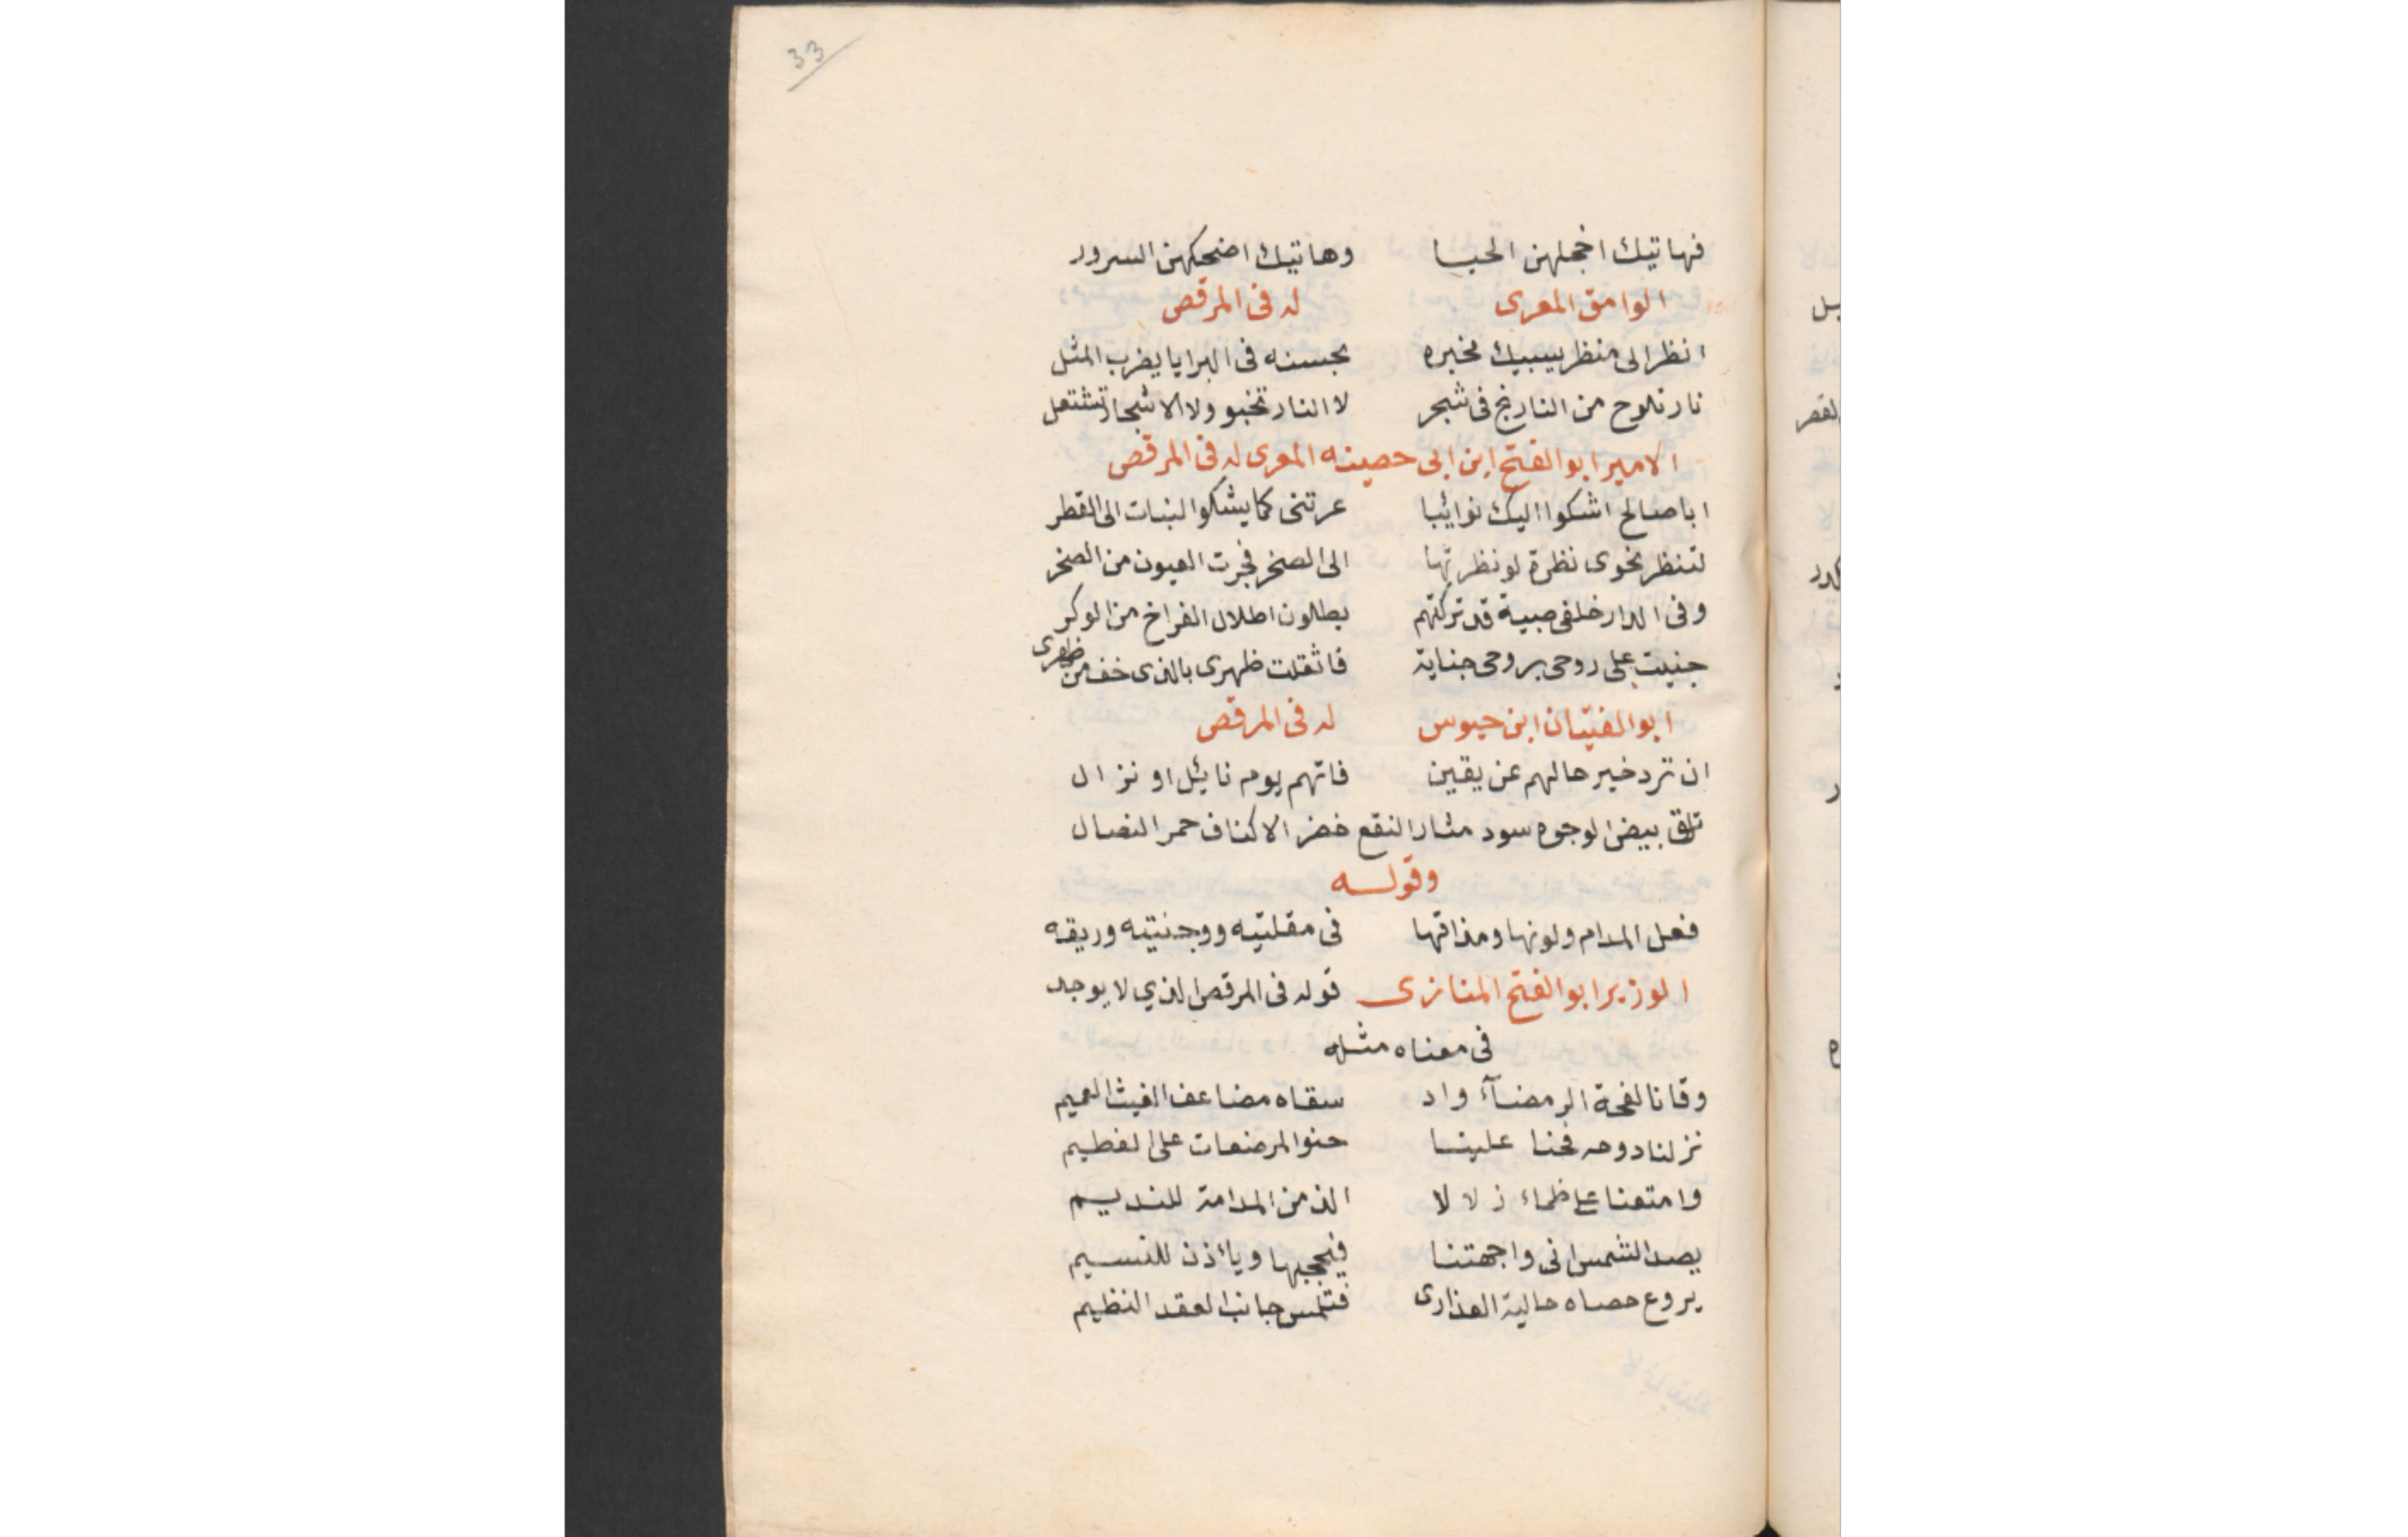 33
فهاتيك اخجلهن الحيا وهاتيك اضحكهن السرور
الوامق المعرى له فى المرقص
انظر الى منظر يسبيك مخبره بحسنه فى البرايا يضرب المثل
نار تلوح من النارنج فى شجر لا النار تخبو ولا الاشجار تشتعل
الامير ابو الفتح ابن ابى حصينه المعرى له فى المرقص
ابا صالح اشكوا اليك نوائبا عرتنى كما يشكوا النبات الى القطر
لتنظر نحوى نظرة لو نظرتها الى الصخر فجرت العيون من الصخر
وفى الدار خلفى صبية قد تركتهم يطلون اطلال الفراخ من الوكر
جنيت على روحى بروحى جناية فاثقلت ظهرى بالذى خف من ظهرى
ابو الفتيان ابن حيوس له فى المرقص
ان ترد خير حالهم عن يقين فاتهم يوم نائل او نزال
تلق بيض الوجوه سود مثار النقع خضر الاكناف حمر النصال
وقوله
فعل المدام ولونها ومذاقها فى مقلتيه ووجنتيه وريقه
الوزير ابو الفتح المنازى قوله فى المرقص الذي لا يوجد
فى معناه مثله
وقانا لفحة الرمضآء واد سقاه مضاعف الغيث العميم
نزلنا دوحه فحنا علينا حنو المرضعات على الفطيم
وامتعنا على ظماء زلالا الذ من المدامة للنديم
يصد الشمس انى واجهتنا فيحجبها ويأذن للنسيم
يروع حصاه حالية العذارى فتلمس جانب العقد النظيم